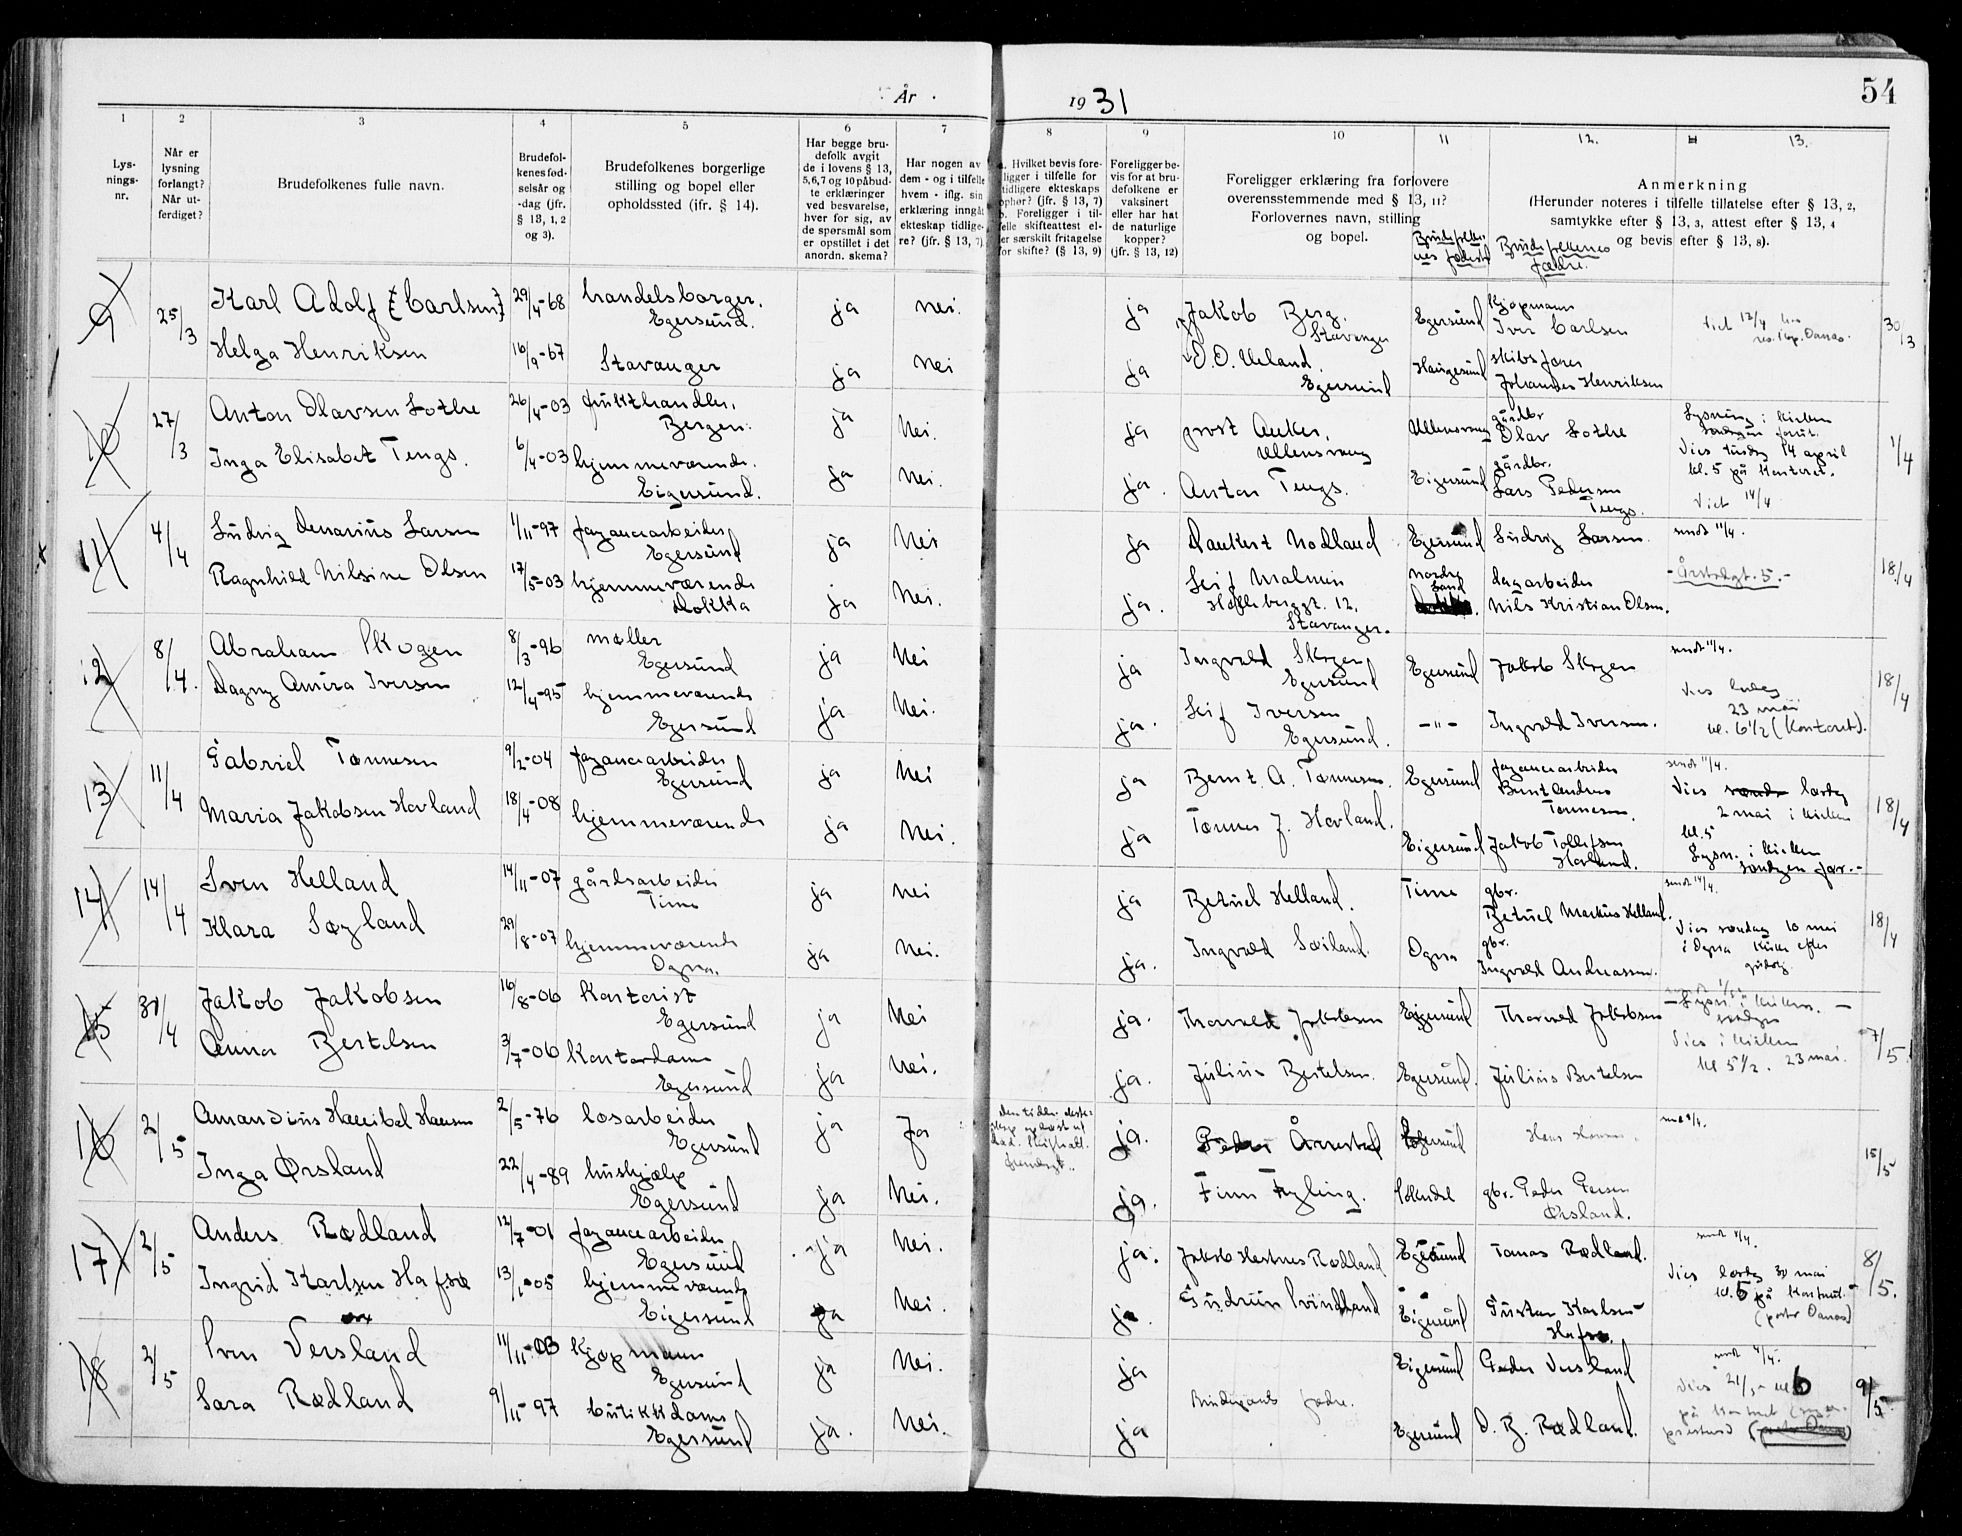 54
År 1931
1
2
3
4
5
6
7
8
9
10
11
12.
13.
Lys-
nings-
nr.
Når er
lysning
forlangt?
Når ut-
ferdiget?
Brudefolkenes fulle navn.
Brudefol-
kenes fød-
selsår og
-dag (jfr.
§ 13, 1, 2
og 3).
Brudefolkenes borgerlige
stilling og bopel eller
opholdssted (ifr. § 14).
Har begge bru-
defolk avgit
de i lovens § 13,
5, 6, 7 og 10 påbud-
te erklæringer
ved besvarelse,
hver for sig, av
de spørsmål som
er opstillet i det
anordn. skema?
Har nogen av
dem - og i tilfelle
hvem - iflg. sin
erklæring inngåt
ekteskap tidlige-
re? (jfr. § 13, 7)
a. Hvilket bevis fore-
ligger i tilfelle for
tidligere ekteskaps
ophør? (jfr. § 13, 7)
b. Foreligger i til-
felle skifteattest el-
ler særskilt fritagelse
for skifte? (§ 13, 9)
Foreligger be-
vis for at bru-
defolkene er
vaksinert
eller har hat
de naturlige
kopper?
(jfr. § 13, 12)
Foreligger erklæring fra forlovere
overensstemmende med § 13, 11?
Forlovernes navn, stilling
og bopel.
Brudefolke-
nes fødested
Brudefolkenes
fædre.
Anmerkning
(Herunder noteres i tilfelle tillatelse efter § 13, 2,
samtykke efter § 13, 3, attest efter § 13, 4
og bevis efter § 13, 8).
9 25/3 Karl Adolf {Carlsen} 29/4-68 handelsborger. ja nei. ja Jakob Berg. Egersund kjøpmann 30/3
Egersund. Stavanger Iver Carlsen
Viet 12/4
Helga Henriksen 16/9-67 Stavanger ja nei ja O. O. Ueland. Haugesund skibsfører
Egersund Johannes Henriksen
10 27/3 Anton Olavsen Lothe 26/4-03 frukthandler. ja Nei. ja prost Anker. Ullensvang gårdbr 1/4
Bergen. Ullensvang Olav Lothe
Lysning i kirken
søndagen forut.
Vies tirsdag 14 april
kl. 5 på kontoret.
Viet 14/4
Inga Elisabet Tengs. 6/4-03 hjemmeværende. ja Nei. ja. Anton Tengs. Eigersund gårdbr.
Eigersund. Lars Pedersen
Tengs.
11 4/4 Ludvig Denarius Larsen 1/11-97 fayancearbeider ja Nei ja Dankert Nodland Egersund Ludvig Larsen sendt 11/4. 18/4
Egersund
Ragnhild Nilsine Olsen 17/5-03 hjemmeværende ja Nei. ja. Leif Malmin Nordre Land dagarbeider
Dokka Stavanger. Nils Kristian Olsen.
12 8/4. Abraham Skogen 8/3-96 møller ja Nei ja Ingvald Skogen Egersund Jakob Skogen sendt 11/4. 18/4
Egersund Egersund
Dagny Amira Iversen 12/4-95 hjemmeværende ja Nei. ja. Leif Iversen -"- Ingvald Iversen.
Egersund Egersund.
23 mai
kl. 6 1/2 (Kontoret).
13 11/4 Gabriel Tønnesen 9/2-04 fayancearbeider ja Nei ja Bernt. A. Tønnesen. Egersund fayancearbeider sendt 11/4. 18/4
Egersund Bernt Andreas
Tønnesen.
Vies lørdag
2 mai i kirken
kl. 5
Maria Jakobsen Hovland 18/4-08 hjemmeværende ja Nei. ja Tønnes J. Hovland. Eigersund Jakob Tollefsen
Hovland.
Lysn. i kirken
søndagen før.-
14 14/4 Sven Helland 14/11-07 gårdsarbeider ja Nei ja Betuel Helland. Time gbr. sendt 14/4. 18/4
Time Betuel Markus Helland.
Klara Søyland 29/8-07 hjemmeværende ja Nei. ja. Ingvald Søiland. Ogna gbr.
Ogna. Ingvald Andreassen.
Vies søndag 10 mai
i Ogna kirke efter
gudstj.
15 30/4 Jakob Jakobsen 16/8-06 kontorist ja Nei ja. Thorvald Jakobsen Egersund Thorvald Jakobsen 7/5.
Egersund
Anna Bertelsen 3/7-06 kontordame ja Nei. ja. Julius Bertelsen. Egersund. Julius Bertelsen
Egersund
Vies i kirken
kl 5 1/2. 23 mai.
16 2/5 Amandius Hannibal Hansen 2/5-76 løsarbeider ja Ja ja. Peder Årrestad Egersund Hans Hansen. 15/5
Egersund
Inga Ørsland 22/4-89 hushjælp ja Nei. ja. Finn Fyling. gbr. Peder Persen
Egersund Ørsland.
17 2/5 Anders Rødland 12/7-01 fayancearbeider ja Nei. ja. Jakob Hestnes Rødland Egersund Tønas Rødland. sendt 4/4. 8/5.
Egersund
Ingrid Karlsen Hafsø 13/1-05 hjemmeværende ja Nei. ja. Gudrun Svindland Eigersund Gustav Karlsen
Eigersund Hafsø.
Vies lørdag 30 mai
kl. 5 på kontoret.
18 2/5 Sven Versland 11/11-03 Kjøpmann ja Nei. ja Brudeparets fædre. Eigersund Peder Versland sendt 4/4. 9/5
Egersund
Sara Rødland 9/11-97 butikkdame ja. Nei. ja Egersund O. B. Rødland.
Egersund